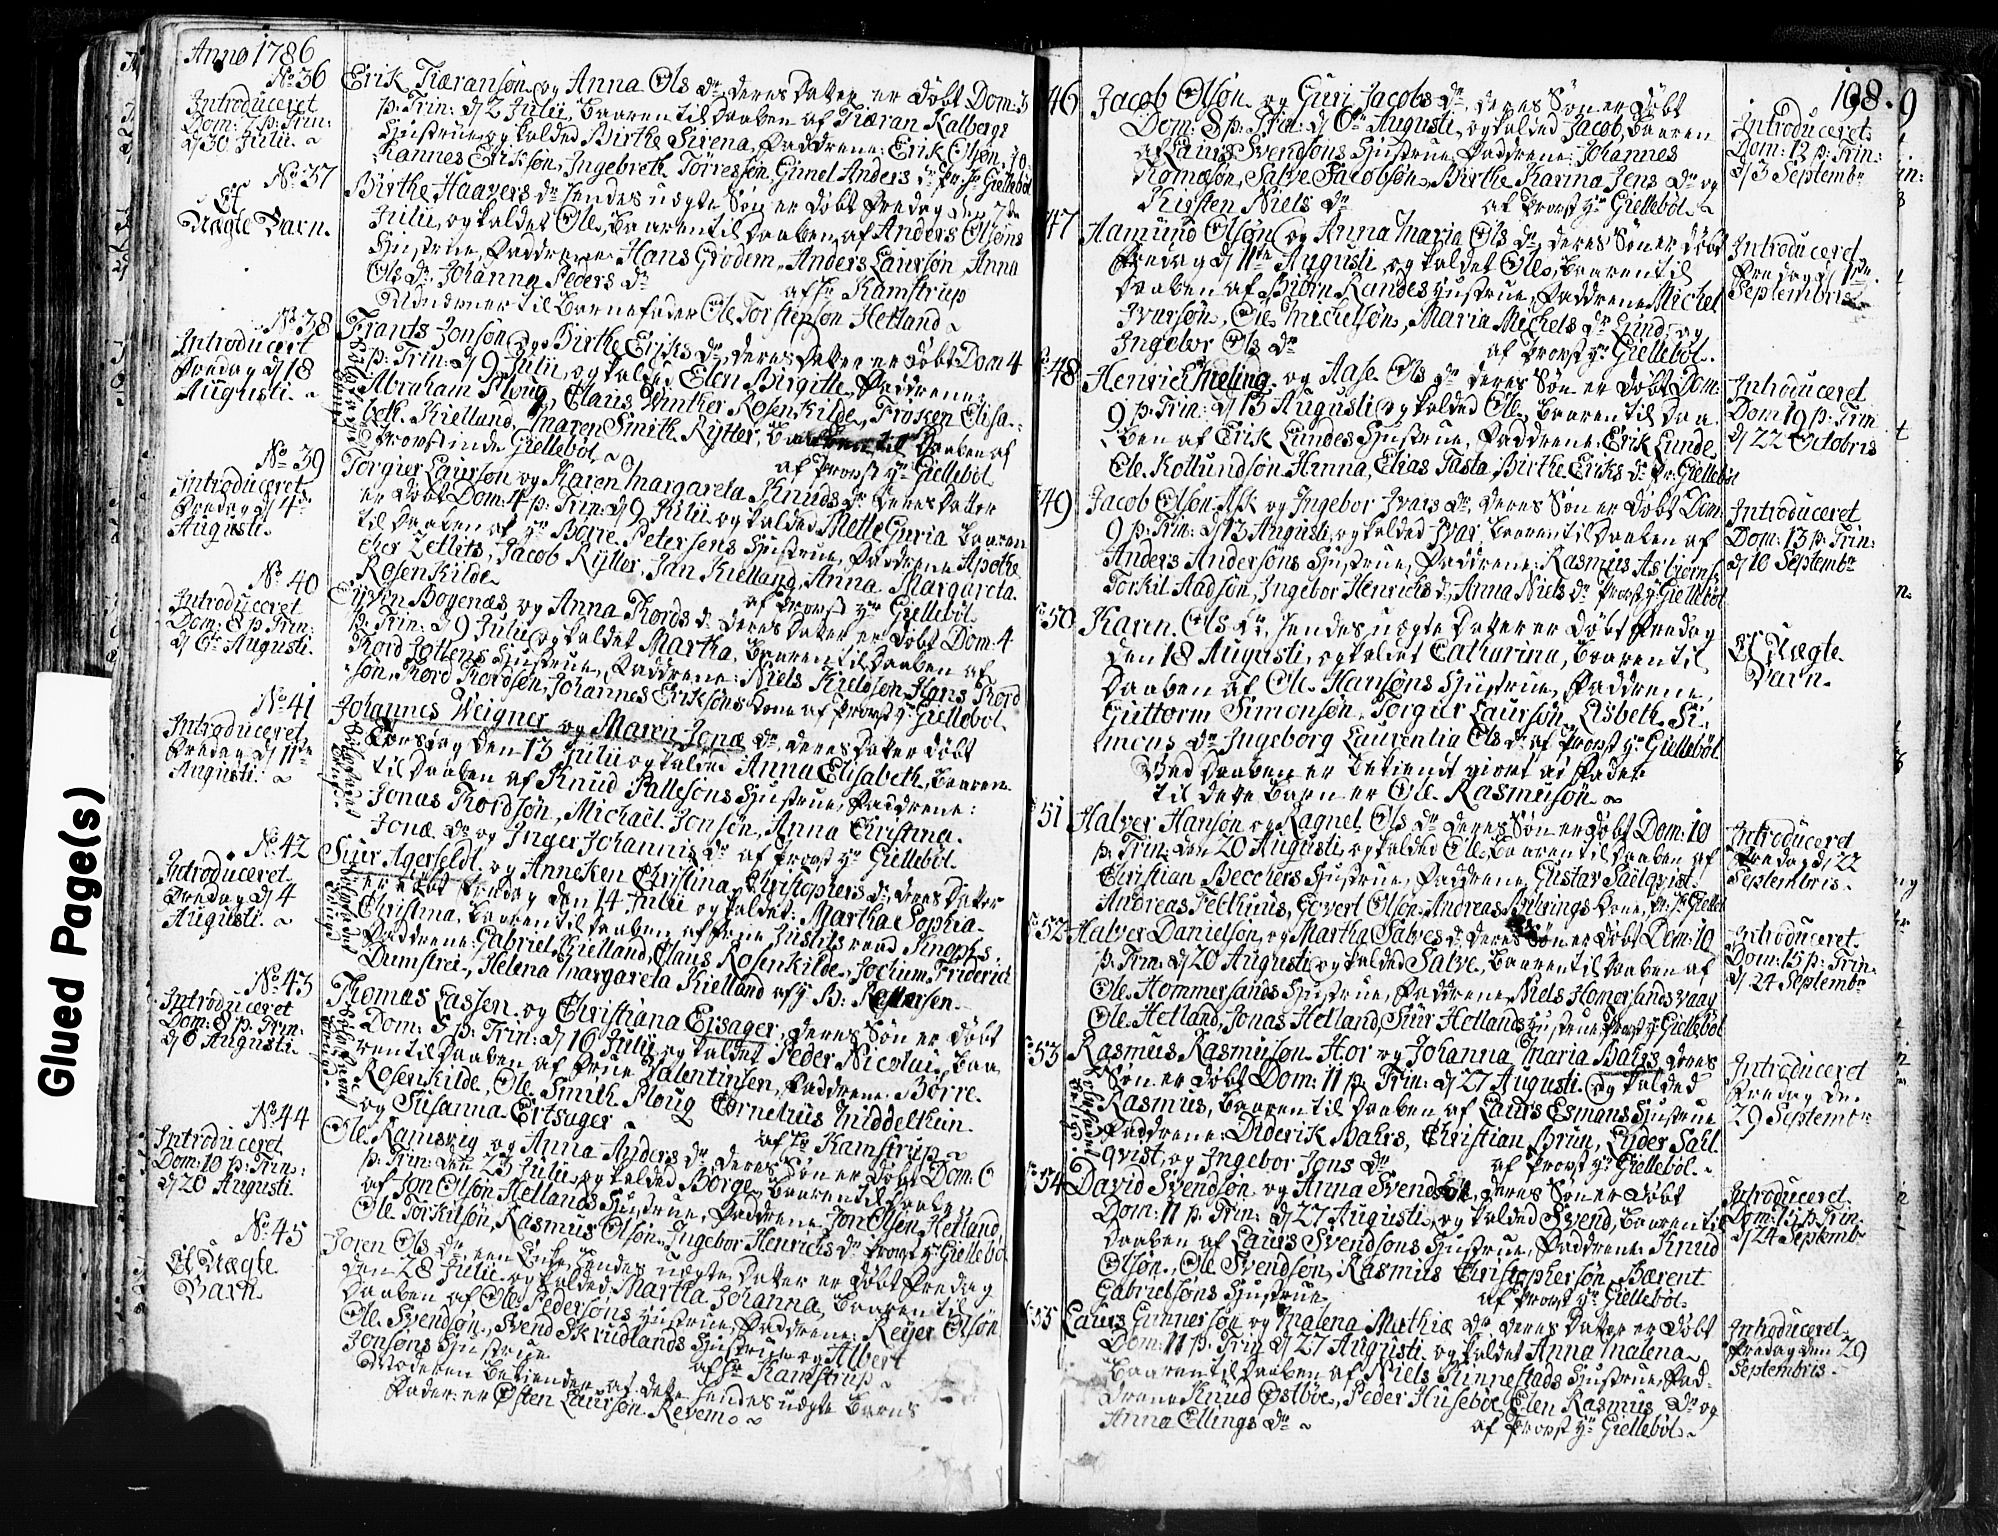 Anno 1786
No 36
Introduceret
Dom: 7 p: Trin:
d/ 30 Julii.
Erik Tiæransøn og Anna Ols dr deres Dater er døbt Dom: 3
p: Trin: d/ 2 Julii, baaren til Daaben af Tiæran Kalbergs
Hustrue, og kalded Birthe Sirena, Faddrene: Erik Olsøn, Jo-
hannes Eriksøn, Ingebreth Torresøn, Gunel Anders dr Pr: Hr Giellebøl
No 37
Et
Uægte Barn.
Birthe Haavers dr hendes uægte Søn er døbt Fredag den 7de
Julii, og kaldet Ole, baaren til Daaben af Anders Olsøns
Hustrue, Faddrene Hans Grodem, Anders Laursøn, Anna
Ols dr Johanna Peders dr
af Hr Kamstrup
Udnævner til Barnefader Ole Torstensøn Hetland
No 38
Introducert
Fredag d/ 18
Augusti.
Frants Jonsøn og Birthe Eriks dr, deres Dater er døbt Dom 4
p: Trin: d/ 9 Julii, og kaldet Elen Birgithe, Faddrene:
Abraham Ploug, Claus Winther Rosenkilde, Frøken Elisa-
beth Kielland, Maren Smith Rytter, baaren til Daaben af
Provstinde Giellebøl
af Provst Hr Giellebøl
No 39
Introduceret
Fredag d/ 4de
Augusti.
Torgier Laursøn og Karen Margareta Knuds dr deres Datter
er døbt Dom: 4 p: Trin: d/ 9 Julii og kaldet Mette Guria baaren
til Daaben af Hr Børre Petersens Hustrue, Faddrene Apothe-
cher Zetlits, Jacob Rytter, Jan Kielland, Anna Margareta
Rosenkilde
af Provst Hr Giellebøl
No 40
Introduceret
Dom: 8 p: Trin:
d/ 6te Augusti.
Eivin Bogenæs og Anna Thords dr deres Dater er døbt Dom: 4
p: Trin: d/ 9 Julii og kaldet Martha, baaren til Daaben af
Thord Jøttens Hustrue, Faddrene: Niels Kielsøn, Hans Thord-
søn, Thord Thordsøn, Johannes Eriksøns kone af Provst Hr Giellebøl
No 41
Introduceret
Fredag d/ 11te
Augusti.
Johannes Weigner og Maren Jonæ dr, deres Dater døbt
Torsdag den 13 Julii og kaldet Anna Elisabeth, baaren
til Daaben af Knud Pallesøns Hustrue, Faddrene:
Jonas Thordsøn, Michael Jonsøn, Anna Christina
Jonæ dr og Inger Johannis dr af Provst Hr Giellebøl.
No 42
Introduceret
Fredag d/ 4
Augusti.
Siur Agerfeldt og Anneken Christina Christophers dr, deres Dater
er døbt Fredag den 14 Julii og kaldet: Martha Sophia
Christina, baaren til Daaben af Frue Justitsraad Knophs,
Faddrene: Gabriel Kielland, Claus Rosenkilde, Jochum Friderich
Dumstrei, Helena Margareta Kielland af Hr B: Pettersen
No 43
Introduceret
Dom: 8 p: Trin:
d/ 6 Augusti
Thomas Lassen og Christiana Ersager, deres Søn er døbt
Dom: 5 p: Trin: d/ 16 Julii og kaldet Peder Nicolai, baa-
ren til Daaben af Frue Valentinsen, Faddrene: Børre
Rosenkilde, Ole Smith Ploug Cornelius Middelthun
og Susanna Ertsager
af Hr Kamstrup
No 44
Introduceret
Dom: 10 p: Trin:
d/ 20 Augusti
Ole Ramsvig og Anna Anders dr, deres Søn er døbt Dom: 6
p: Trin: den 23 Julii, og kaldet Borge, baaren til Daaben
af Jon Olsøn Hetlands Hustrue, Faddrene Jon Olsøn Hetland
Ole Torkilsøn, Rasmus Olsøn, Ingebor Henrichs dr Provst Hr Giellebøl
No 45
Et Uægte
Barn
Joren Ols dr, een Enke hendes uægte Dater er døbt Fredag
den 28 Julii og kaldet Martha Johanna, baaren til
Daaben af Ole Pedersøns Hustrue, Faddrene: Reyer Olsøn
Ole Svendsøn, Svend Skrudlands Hustrue og Albert
Jonsøns Hustrue
af Hr Kamstrup
Moderen bekiender at dette hendes uægte Barns
Fader er Østen Laursøn Revem
198.
46
Jacob Olsøn og Guri Jacobs dr, deres Søn er døbt
Dom: 8 p: Trin: d/ 6te Augusti, og kaldet Jacob, baaren
af Laurs Svendsøns Hustrue, Faddrene: Johannes
Romøsøn, Salve Jacobsøn, Birthe Karina Jens dr og
Kirsten Niels dr
af Provst Hr Giellebøl
Introduceret
Dom: 12 p: Trin:
d/ 3 Septembr
47
Aamund Olsøn og Anna Maria Ols dr, deres Søn er døbt
Fredag d/ 11te Augusti og kaldet Ole, baaren til
Daaben af Biørn Randes Hustrue, Faddrene Michel
Ivarsøn, Ole Michelsøn, Maria Michels dr Lund, og
Ingebor Ols dr
af Provst Hr Giellebøl.
Introduceret
Fredag d/ 1ste
Septembris
48
Henrich Meling og Aase Ols dr deres Søn er døbt Dom:
9 p: Trin: d/ 13 Augusti og kaldet Ole, baaren til Daa-
ben af Erik Lundes Hustrue, Faddrene, Erik Lunde
Ole Kollundsøn Hanna, Elias Tasta Birthe Eriks dr Pr: Giellebøl
Introduceret
Dom 19 p: Trin
d/ 22 Octobris
49
Jacob Olsøn Ask og Ingebor Ivars dr, deres Søn er døbt Dom
9 p: Trin: d/ 13 Augusti, og kaldet Ivar, baaren til Daaben af
Anders Andersøns Hustrue, Faddrene: Rasmus Asbiørns:
Torkil Aadsøn, Ingebor Henrichs dr, Anna Niels dr Provst Hr Giellebøl
Introduceret
Dom: 13 p: Trin:
d/ 10 Septembr
50
Karen Ols dr, hendes uægte Dater er døbt Fredag
den 18 Augusti, og kaldet Catharina, baaren til
Daaben af Ole Hansøns Hustrue, Faddrene,
Guttorm Simonsøn, Torgier Laursøn, Lisbeth Si-
mens dr Ingeborg Laurentia Ols dr af Provst Hr Giellebøl
Ved Daaben er bekiendt giort at Fader
til dette Barn er Ole Rasmusøn
Et Uægte
Barn.
51
Halver Hansøn og Ragnel Ols dr deres Søn er døbt Dom: 10
p: Trin: den 20 Augusti, og kaldet Ole, baaren til Daaben af
Christian Becchers Hustrue, Faddrene Gustav Saelqvist
Andreas Felthuus, Govert Olsøn, Andreas Bührings kone, Pr: Hr Giellebøl
Introduceret
Fredag d/ 22
Septembris.
52
Halver Danielsøn og Martha Salves dr, deres Søn er døbt Dom: 10
p: Trin: d/ 20 Augusti, og kaldet Salve, baaren til Daaben af
Ole Hommersands Hustrue, Faddrene Niels Homersandsvaag
Ole Hetland, Jonas Hetland, Siur Hetlands Hustrue Provst Hr Giellebøl
Introduceret
Dom: 15 p: Trin:
d/ 24 Septembr
53
Rasmus Rasmusøn Hor og Johanna Maria Bahrs deres
Søn er døbt Dom: 11 p: Trin: d/ 27 Augusti og kaldet
Rasmus, baaren til Daaben af Laurs Esmans Hustrue
Faddrene: Diderik Bahrs, Christian Brun, Lyder Sahl-
qvist, og Ingebor Jons dr
af Provst Hr Giellebøl.
Introduceret
Fredag den
29 Septembr
54
David Svendsøn og Anna Svends dr, deres Søn er døbt
Dom: 11 p: Trin: d/ 27 Augusti, og kaldet Svend, baaren til
Daaben af Laurs Svendsøns Hustrue, Faddrene Knud
Olsøn, Ole Svendsøn, Rasmus Christophersøn, Bærent
Gabrielsøns Hustrue
af Provst Hr Giellebøl.
Introduceret
Dom: 15 p: Trin
d/ 24 Septembr
55
Laurs Gunnersøn og Malena Mathiæ dr deres Dater er døbt
Dom: 11 p: Trin: d/ 27 Augusti og kaldet Anna Malena,
baaren til Daaben af Niels Finnestads Hustrue, Fad-
drene Knud Østbøe, Peder Husebøe, Elen Rasmus dr og
Anna Ellings dr
af Provst Hr Giellebøl.
Introduceret
Fredag den 29
Septembris.
Glued Page(s)